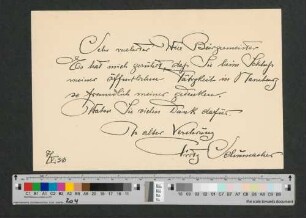 Sehr verehrter Herr Bürgermeister.
Es hat mich gerührt, daß Sie beim Schluß
meiner öffentlichen Tätigkeit in Hamburg
so freundlich meiner gedenken.
Haben Sie vielen Dank dafür.
In alter Verehrung
Fritz Schumacher